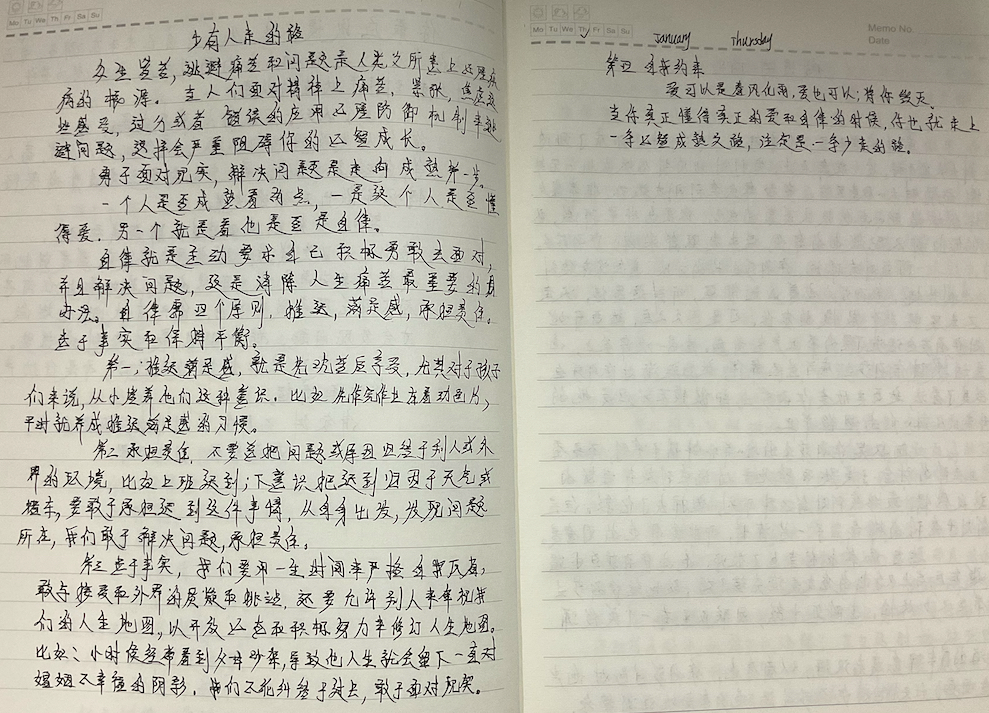 Mo Tu We Th Fr Sa Su
少有人走的路
人生苦苦，逃避痛苦和问题是人类之所患上心理疾
病的根源。当人们面对精神上痛苦，紧张，焦虑
感受，过分或者错误的应用心理防御机制来逃
避问题，这样会严重阻碍你的心智成长。
勇于面对现实，解决问题是走向成熟第一步。
一个人是否成熟看两点，一是这个人是否懂
得爱，另一个就是看他是否是自律。
自律就是主动要求自己积极勇敢去面对，
并且解决问题，这是消除人生痛苦最重要的
办法。自律需四个原则，推迟，满足感，承担责任，
忠于事实和保持平衡。
第一，推迟满足感，就是先吃苦后享受，尤其对于孩子
们来说，从小培养他们这种意识。比如先作完作业在看动画片，
平时就养成推迟满足感的习惯。
第二承担责任，不要总把问题或原因归结于别人或外
界的环境，比如上班迟到；下意识把迟到归因于天气或
堵车，要敢于承担迟到这件事情，从自身出发，发现问题
所在，我们敢于解决问题，承担责任。
第三忠于事实，我们要用一生时间来严格自我反省，
敢与接受和外界的质疑和挑战，还要允许别人来审视我
们的人生地图，以开放心态和积极努力来修订人生地图。
比如：小时候经常看到父母吵架，导致他人生就会留下一直对
婚姻不幸福的阴影，我们不能纠结于过去，敢于面对现实。
Mo Tu We Th Fr Sa Su
January Thursday
Memo No.
Date
第四 自我约束
爱可以是春风化雨，爱也可以；将你毁灭。
当你真正懂得真正的爱和自律的时候，你也就走上
一条心智成熟之路，注定是一条少走的路。